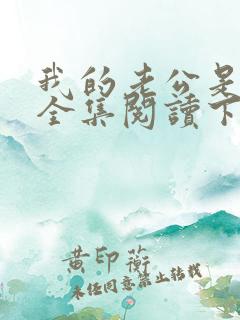 我的老公是
全集閱讀下
黄印蘅
未任同意禁止转载